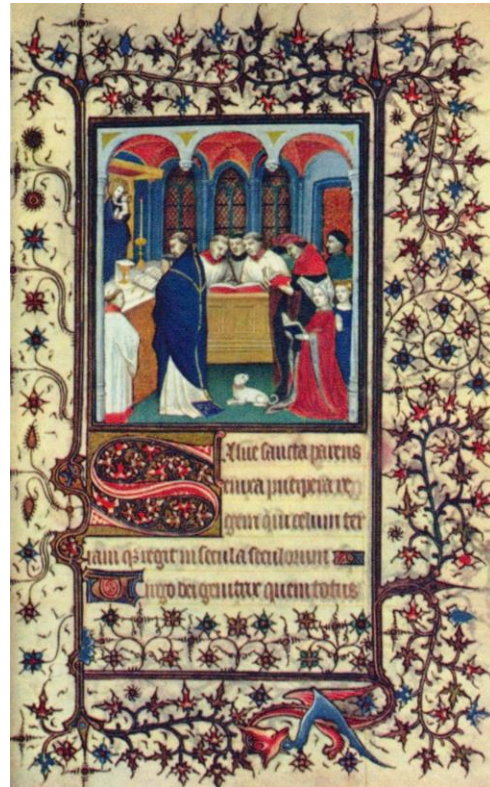 Salue sancta parens
enixa puerpera re
gem qui celum ter
ram qꝫ regit in secula seculorum
Virgo dei genitrix quem totus